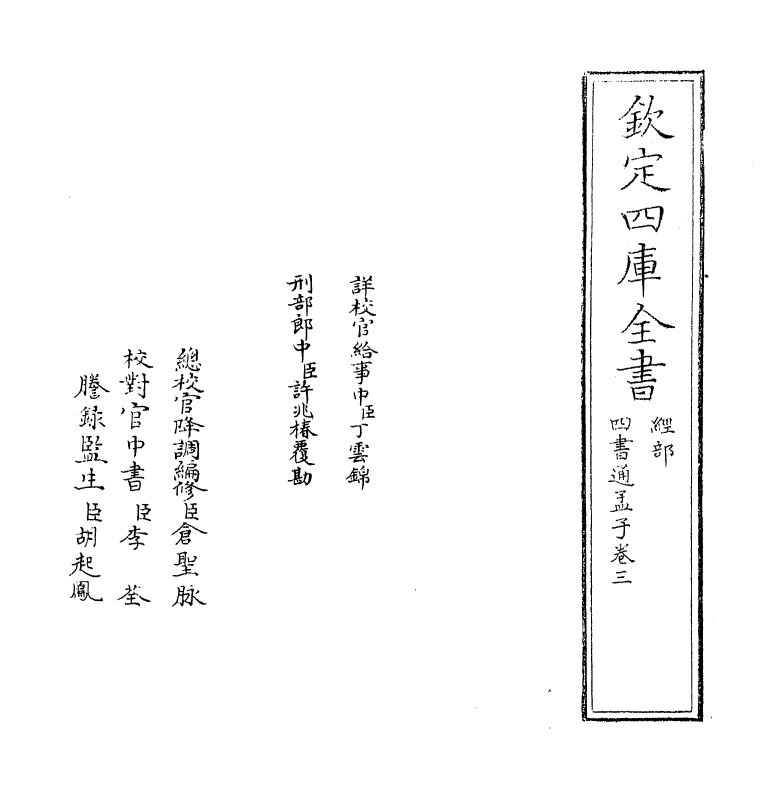 欽定四庫全書
經部
四書通孟子卷三
詳校官給事中臣丁雲錦
刑部郎中臣許兆椿覆勘
總校官降調編修臣倉聖脉
校對官中書臣李荃
謄録監生臣胡起鳳